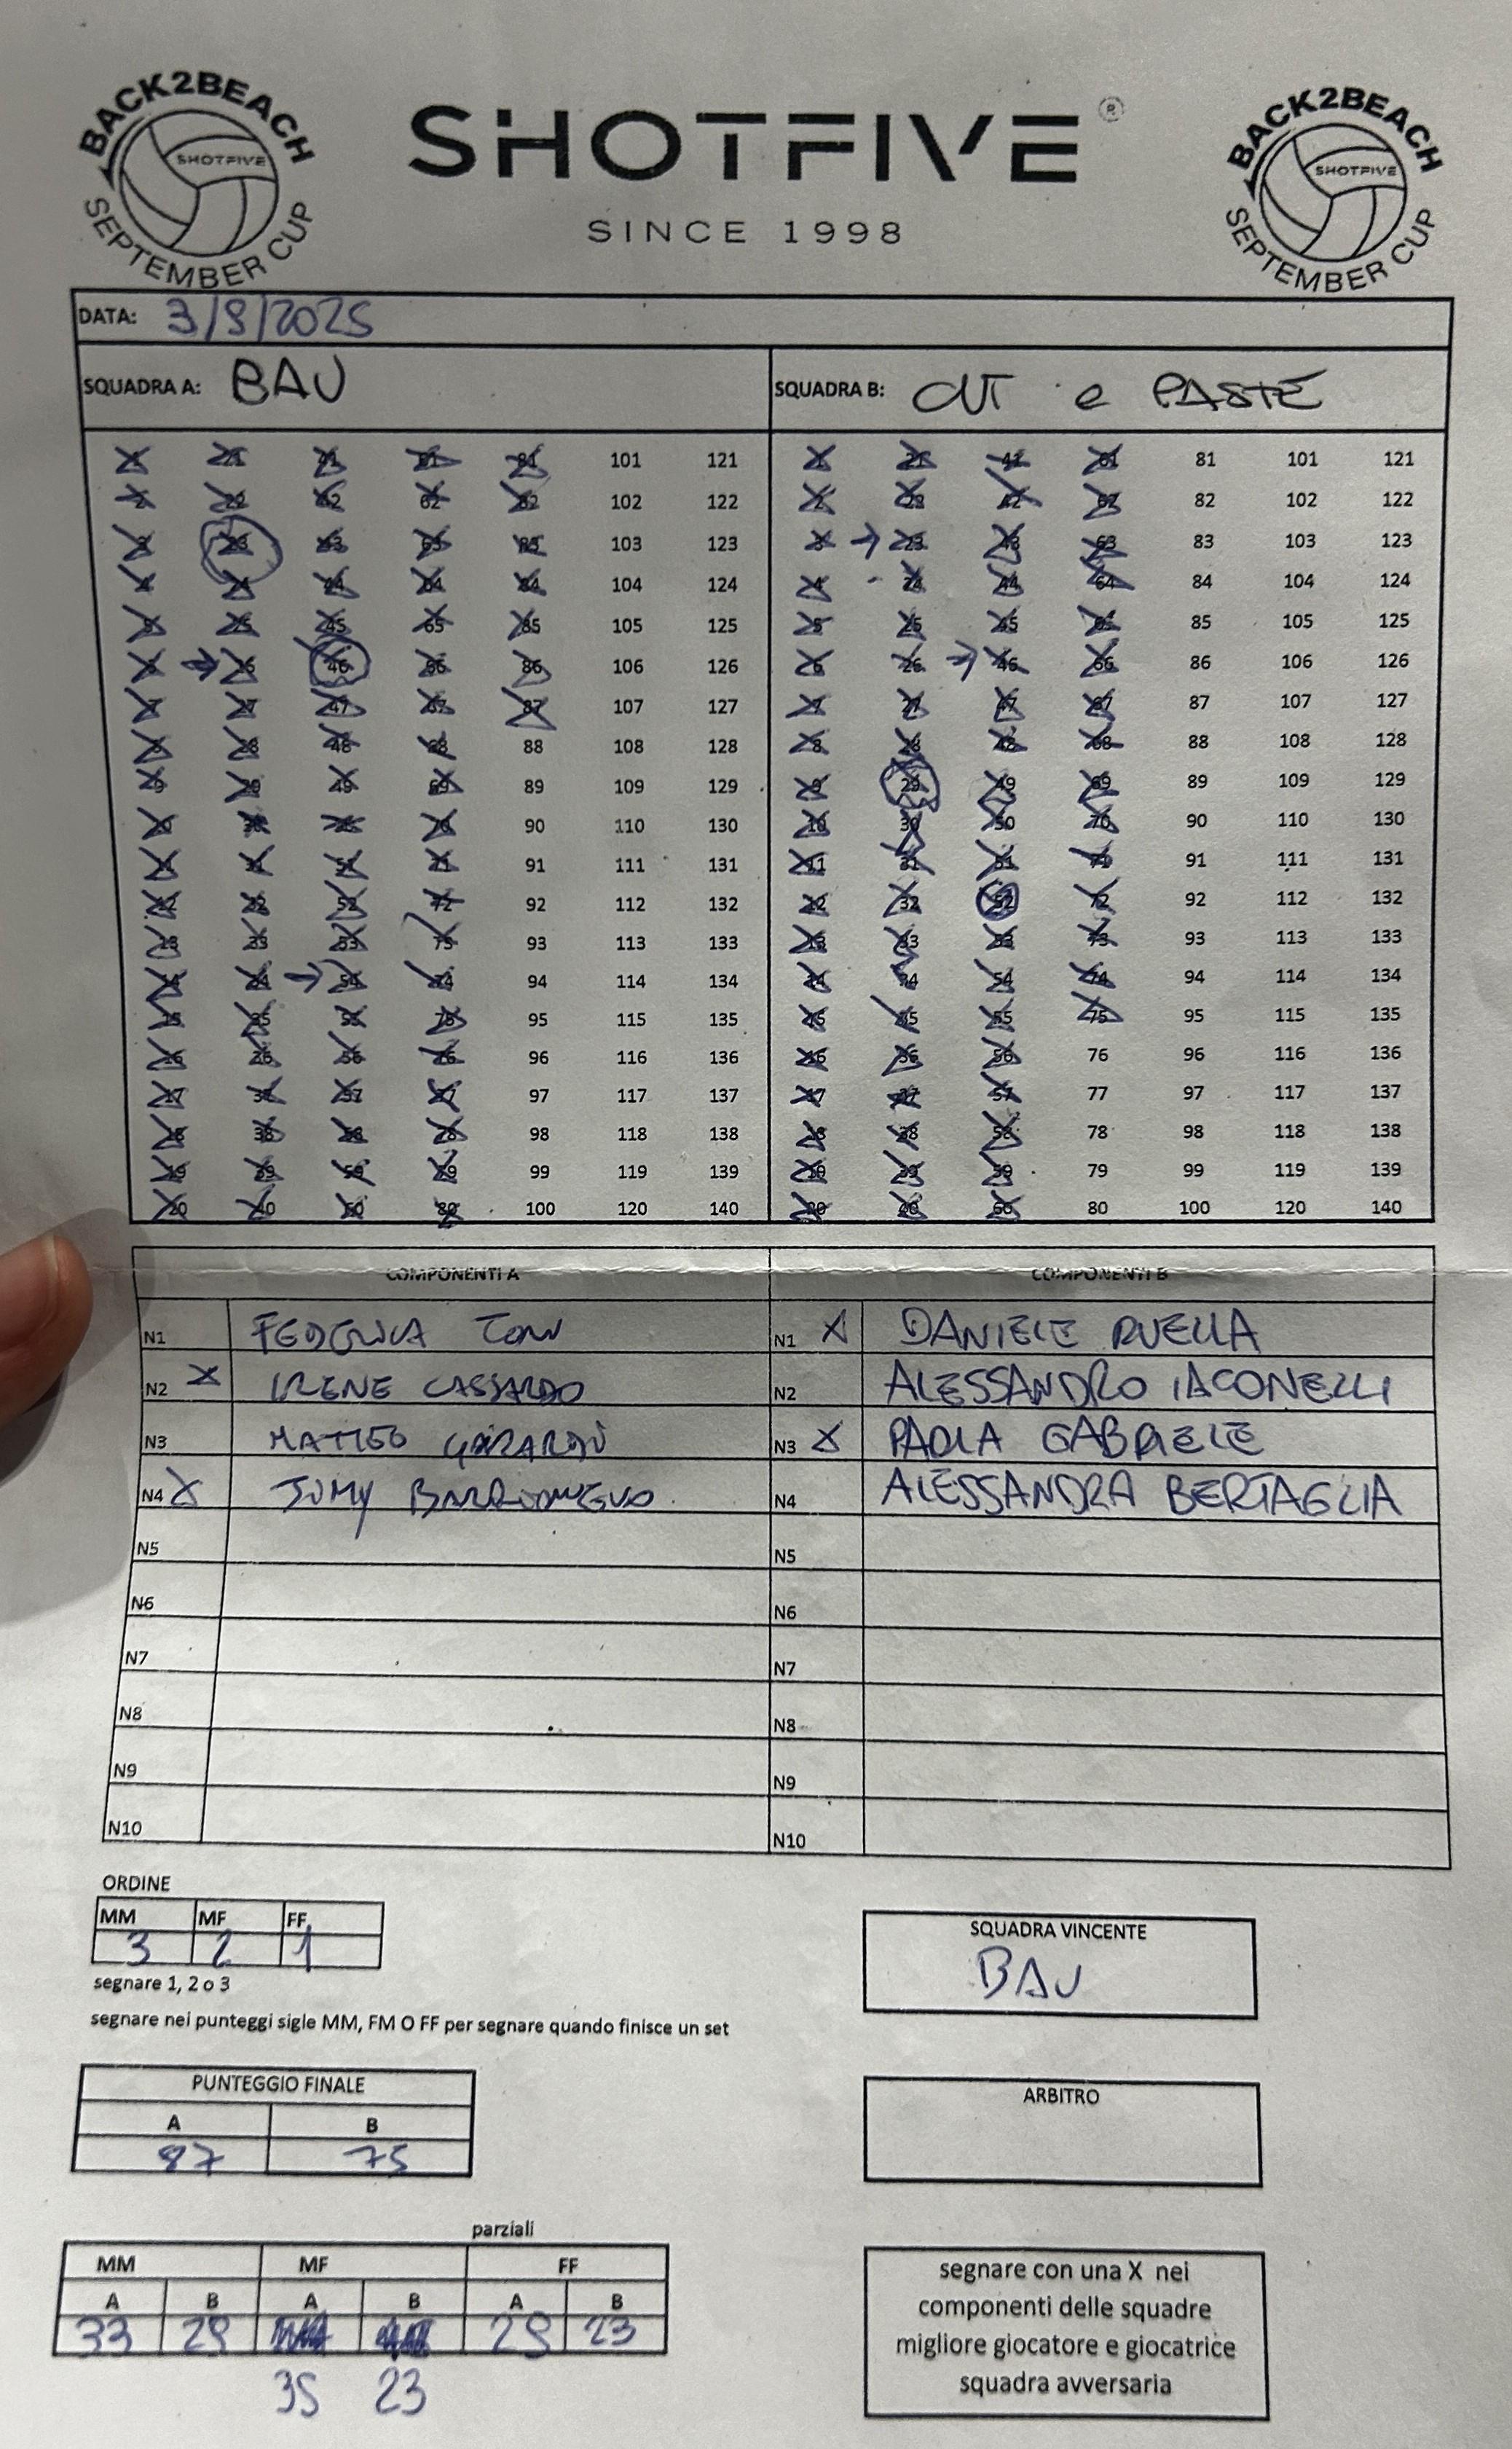 BACK2BEACH SHOTFIVE SEPTEMBER CUP
SHOTFIVE®
SINCE 1998
BACK2BEACH SHOTFIVE SEPTEMBER CUP
DATA: 3/9/2025
SQUADRA A: BAU SQUADRA B: CUT e PASTE
1 21 41 61 81 101 121 1 21 41 61 81 101 121
2 22 42 62 82 102 122 2 22 42 62 82 102 122
3 23 43 63 83 103 123 3 → 23 43 63 83 103 123
4 24 44 64 84 104 124 4 24 44 64 84 104 124
5 25 45 65 85 105 125 5 25 45 65 85 105 125
6 → 26 46 66 86 106 126 6 26 → 46 66 86 106 126
7 27 47 67 87 107 127 7 27 47 67 87 107 127
8 28 48 68 88 108 128 8 28 48 68 88 108 128
9 29 49 69 89 109 129 9 29 49 69 89 109 129
10 30 50 70 90 110 130 10 30 50 70 90 110 130
11 31 51 71 91 111 131 11 31 51 71 91 111 131
12 32 52 72 92 112 132 12 32 52 72 92 112 132
13 33 53 73 93 113 133 13 33 53 73 93 113 133
14 34 → 54 74 94 114 134 14 34 54 74 94 114 134
15 35 55 75 95 115 135 15 35 55 75 95 115 135
16 36 56 76 96 116 136 16 36 56 76 96 116 136
17 37 57 77 97 117 137 17 37 57 77 97 117 137
18 38 58 78 98 118 138 18 38 58 78 98 118 138
19 39 59 79 99 119 139 19 39 59 79 99 119 139
20 40 60 80 100 120 140 20 40 60 80 100 120 140
COMPONENTI A COMPONENTI B
N1 FEDERICA N1 X DANIELE RUELLA
N2 X IRENE CASSARDO N2 ALESSANDRO IACONELLI
N3 MATTEO N3 X PAOLA GABRIELE
N4 X N4 ALESSANDRA BERTAGLIA
N5 N5
N6 N6
N7 N7
N8 N8
N9 N9
N10 N10
ORDINE
MM MF FF
3 2 1
segnare 1, 2 o 3
segnare nei punteggi sigle MM, FM O FF per segnare quando finisce un set
SQUADRA VINCENTE
BAU
PUNTEGGIO FINALE
A B
87 75
ARBITRO
parziali
MM MF FF
A B A B A B
33 29 29 23
35 23
segnare con una X nei
componenti delle squadre
migliore giocatore e giocatrice
squadra avversaria